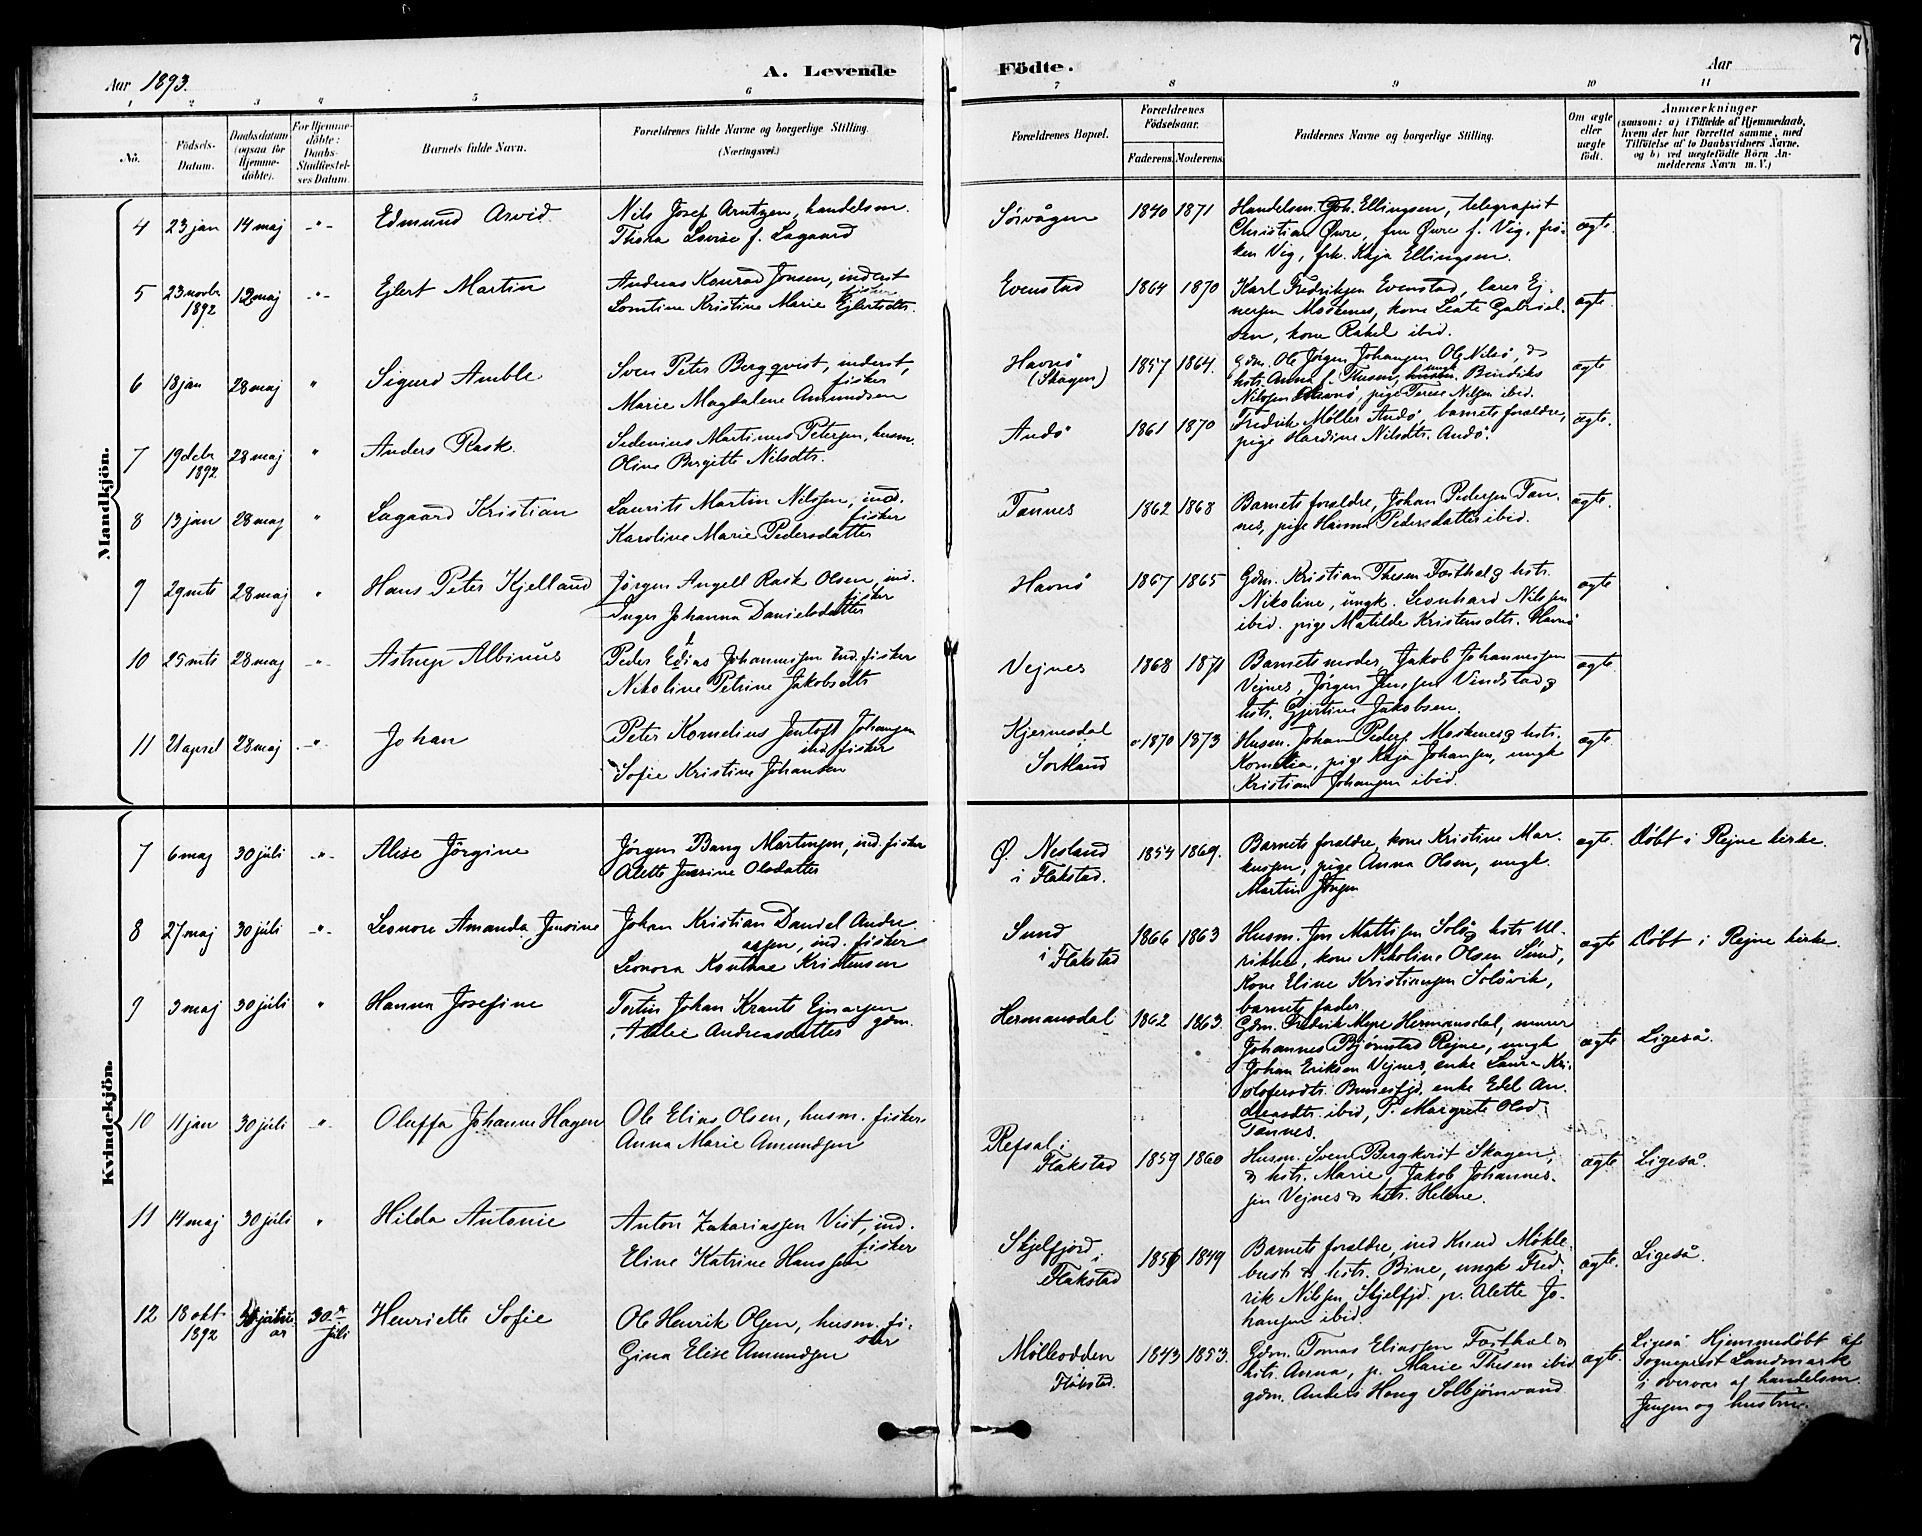 7
Aar 1893.
A. Levende Födte.
Aar
1 2 3 4 5 6 7 8 9 10 11
No.
Födsels-Datum.
Daabsdatum (ogsaa for Hjemmedöbte).
For Hjemmedöbte: Daabs-Stadfæstelses Datum.
Barnets fulde Navn.
Forældrenes fulde Navne og borgerlige Stilling. (Næringsvei.)
Forældrenes Bopæl.
Forældrenes Födselsaar.
Faderens. Moderens.
Faddernes Navne og borgerlige Stilling.
Om ægte eller uægte födt.
Anmærkninger
(saasom: a) i Tilfælde af Hjemmedaab, hvem der har forrettet samme, med Tilföielse af to Daabsvidners Navne, og b) ved uægtefödte Börn Anmelderens Navn m. V.)
Mandkjön.
4 23 jan 14 maj -"- Edmund Arvid. Nils Josef Arntzen, handelsm.
Thora Lovise f. Lagaard
Sørvågen 1840 1871 Handelsm. Joh. Ellingsen, telegrafist
Christian Øvre, fru Øvre f. Vig, frø-
ken Vig, frk. Kaja Ellingsen.
ægte.
5 23 novbr 1892 12 maj -"- Ejlert Martin Andreas Konrad Jensen, inderst
fisker
Lorntine Kristine Marie Ejlertsdtr.
Evenstad 1864 1870 Karl Fredriksen Evenstad, lærer Ej-
nersen Moskenes, kone Beate Gabriel-
sen, kone Rakel ibid.
ægte.
6 18 jan 28 maj " Sigurd Amble Sven Peter Bergqvist, inderst,
fisker
Marie Magdalene Amundsen
Havnø (Skagen) 1857 1864. Gdm. Ole Jørgen Johansen Ole Nilsø, &
hstr. Anna f. Thesen, ungk. Bendiks
Nilssen Havnø, pige Terese Nilsen ibid.
ægte
7 19 debr 1892 28 maj " Anders Rask. Sedenius Martinus Petersen, husm.
Oline Bergitte Nilsdtr.
Andø 1861 1870 Fredrik Møller Andø, barnets forældre,
pige Hardine Nilsdtr. Andø.
ægte.
8 13 jan 28 maj " Lagaard Kristian Laurits Martin Nilssen, ind.
fisker
Karoline Marie Pedersdatter
Tønnes 1862 1868 Barnets forældre, Johan Pedersen Tøn-
nes, pige Hanna Pedersdatter ibid.
ægte.
9 29 mts 28 maj " Hans Peter Kjelland Jørgen Angell Rask Olsen, ind.
fisker
Inger Johanna Danielsdatter
Havnø 1867 1865 Gdm. Kristian Thesen Forsthal & hstr.
Nikoline, ungk. Leonhard Nilssen
ibid. pige Matilde Kristensdtr. Havnø
ægte
10 25 mts 28 maj -"- Astrup Albinus Peder Elias Johannessen Ind. fisker
Nikoline Petrine Jakobsdtr
Vejnes 1868 1871 Barnets moder, Jakob Johannessen
Vejnes, Jørgen Jenssen Vindstad &
hstr. Gjertine Jakobsen.
ægte.
11 21 april 28 maj -"- Johan Peter Kornelius Jentoft Johansen
ind. fisker
Sofie Kristine Johansen
Kjernesdal
Sørland 1870 1873 Husm. Johan Peders. Moskenes & hstr.
Kornelia, pige Kaja Johansen, ungk
Kristian Johansen ibid.
ægte.
Kvindekjön.
7 6 maj 30 juli -"- Alise Jörgine Jørgen Bang Martinsen, ind. fisker
Alette Jensine Olsdatter
Ø. Nesland
i Flakstad. 1854 1869. Barnets forældre, kone Kristine Mar-
kussen, pige Anna Olsen, ungk.
Martin Jörgen
ægte. Døbt i Rejne kirke.
8 27 maj 30 juli -"- Leonore Amanda Jensine Johan Kristian Daniel Andre-
assen, ind. fisker
Leonora Kristensen
Sund
i Flakstad 1866 1863 Husm. Jens Mattisen Solö & hstr Ul-
rikke, kone Nikoline Olsen Sund,
Kone Eline Kristiansen Soløvik,
barnets fader.
ægte Døbt i Rejne kirke.
9 3 maj 30 juli " Hanna Josefine Johan Krants Ejnarsen
gdm.
Andreasdatter
Hermansdal 1862 1863. Gdm. Fredrik Meyer Hermansdal, murer
Johannes Bjørnstad Rejne, ungk
Johan Eriksen Vejnes, enke Laura Kri-
stofersdtr. Bunesfjd. enke Edel An-
dreasdtr. ibid, P. Margrete Olsd.
Tønnes.
ægte Ligeså.
10 11 jan 30 juli -"- Oluffa Johanne Hagen Ole Elias Olsen, husm. fisker
Anna Marie Amundsen
Refsal i
Flakstad 1859 1860 Husm. Sven Bergkvist Skagen,
& hstr. Marie, Jakob Johannes-
sen Vejnes & hstr. Helene.
ægte Ligeså.
11 14 maj 30 juli " Hilda Antonie Anton Zakariassen Vist, ind.
fisker
Eline Katrine Hanssen
Skjelfjord
i Flakstad 1849 Barnets forældre, ind Knud Møkle-
bust & hstr. Bine, ungk Fred-
rik Nilssen Skjelfjd. p. Alette Jo-
hansen ibid.
ægte. Ligeså.
12 18 okt 1892 30te juli Henriette Sofie Ole Henrik Olsen, husm. fi-
sker
Gina Elise Amundsen
Mølleodden
Flakstad. 1843 1853. Gdm. Tomas Eliassen Forsthal &
hstr. Anna, p. Marie Thesen ibid
gdm. Anders Haug Solbjørnvand
ægte. Ligeså Hjemmedøbt af
Sogneprest Landmark
i overvær af handelsm.
Jensen og hustru.